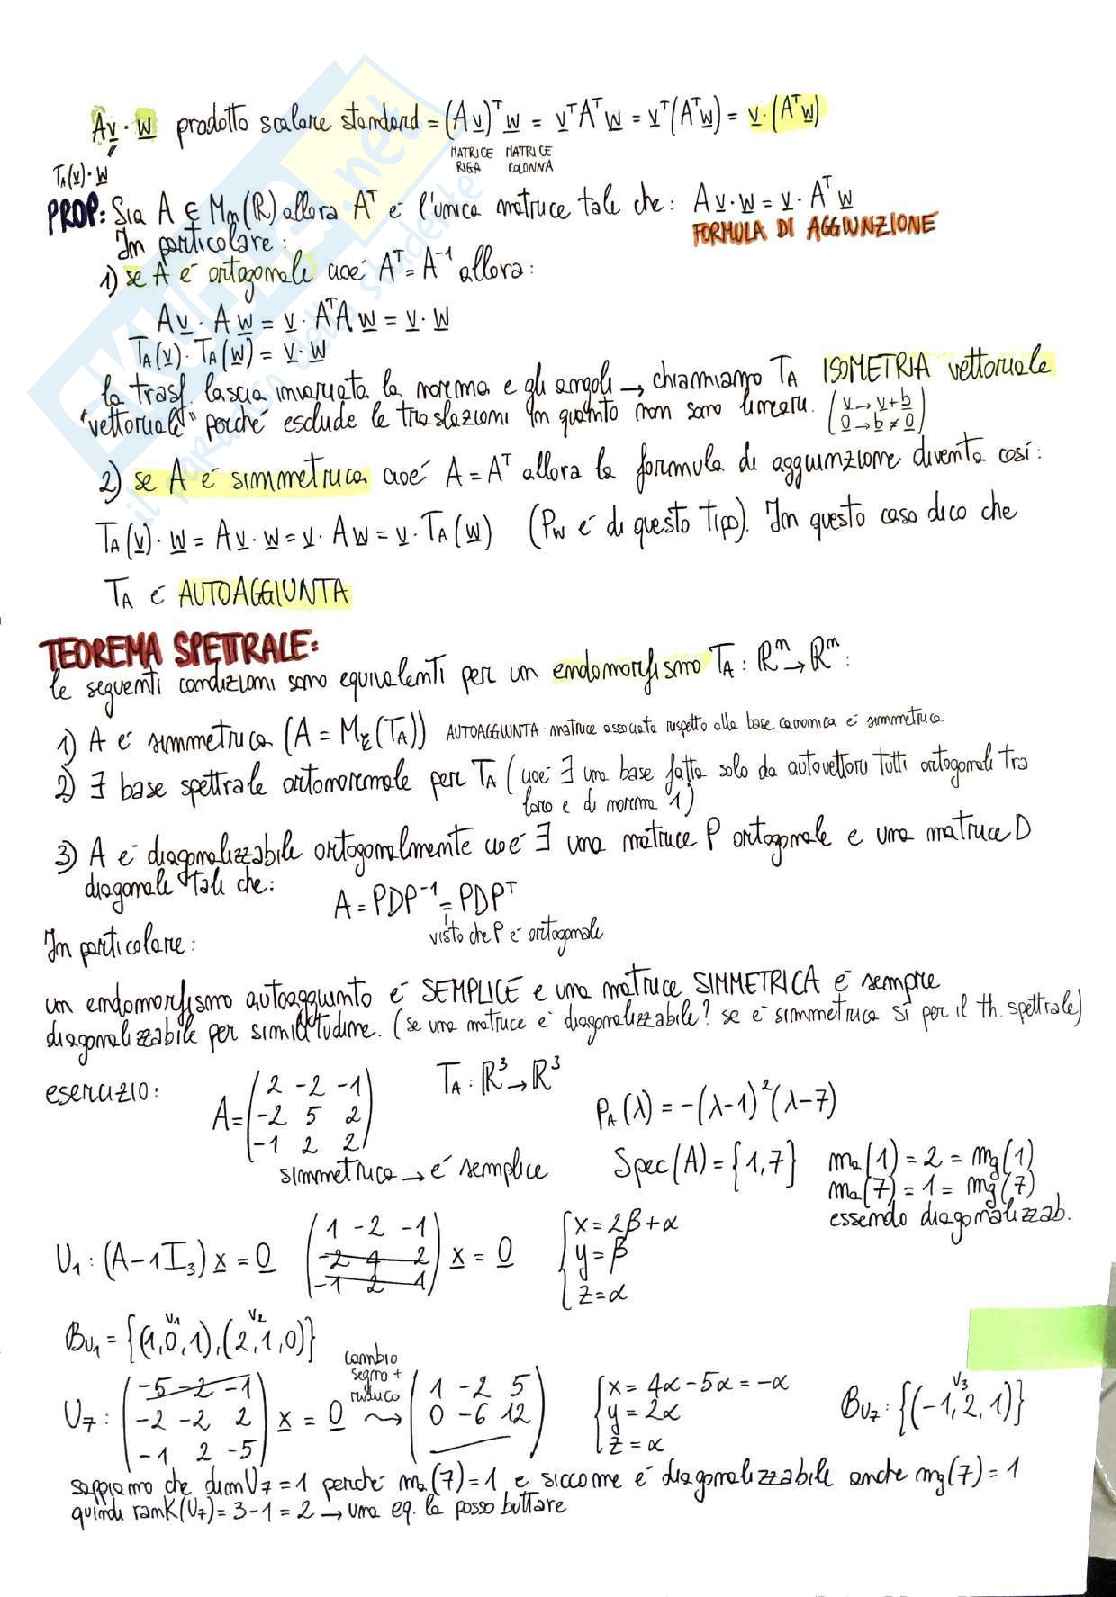 Av · w prodotto scalare standard = (Av)ᵀ w = vᵀAᵀw = vᵀ(Aᵀw) = v · (Aᵀw)
MATRICE RIGA MATRICE COLONNA
T_A(v) · w
PROP: Sia A ∈ Mn(ℝ) allora Aᵀ è l'unica matrice tale che: Av · w = v · Aᵀw
FORMULA DI AGGIUNZIONE
In particolare:
1) se A è ortogonale cioè Aᵀ = A⁻¹ allora:
Av · Aw = v · AᵀAw = v · w
T_A(v) · T_A(w) = v · w
la trasf. lascia invariata la norma e gli angoli → chiamiamo T_A ISOMETRIA vettoriale
"vettoriale" perché esclude le traslazioni in quanto non sono lineari. (v → v+b
0 → b ≠ 0)
2) se A è simmetrica cioè A = Aᵀ allora la formula di aggiunzione diventa così:
T_A(v) · w = Av · w = v · Aw = v · T_A(w) (P_W è di questo tipo). In questo caso dico che
T_A è AUTOAGGIUNTA
TEOREMA SPETTRALE:
le seguenti condizioni sono equivalenti per un endomorfismo T_A : ℝⁿ → ℝⁿ:
1) A è simmetrica (A = M_Σ(T_A)) AUTOAGGIUNTA matrice associata rispetto alla base canonica è simmetrica
2) ∃ base spettrale ortonormale per T_A (cioè ∃ una base fatta solo da autovettori tutti ortogonali tra
loro e di norma 1)
3) A è diagonalizzabile ortogonalmente cioè ∃ una matrice P ortogonale e una matrice D
diagonale tali che:
A = PDP⁻¹ = PDPᵀ
visto che P è ortogonale
In particolare:
un endomorfismo autoaggiunto è SEMPLICE e una matrice SIMMETRICA è sempre
diagonalizzabile per similitudine. (se una matrice è diagonalizzabile? se è simmetrica sì per il th. spettrale)
esercizio:
A = (2 -2 -1
-2 5 2
-1 2 2)
T_A : ℝ³ → ℝ³
P_A(λ) = -(λ-1)²(λ-7)
simmetrica → è semplice
Spec(A) = {1,7}
ma(1) = 2 = mg(1)
ma(7) = 1 = mg(7)
essendo diagonalizzab.
U₁ : (A - 1I₃) x = 0
(1 -2 -1
-2 4 2
-1 2 1) x = 0
{x = 2β + α
y = β
z = α
B_U₁ = {(1,0,1), (2,1,0)}
v₁ v₂
U₇ : (-5 -2 -1
-2 -2 2
-1 2 -5) x = 0
cambio segno + riduco
(1 -2 5
0 -6 12)
{x = 4α - 5α = -α
y = 2α
z = α
B_U₇ : {(-1,2,1)}
v₃
sappiamo che dim U₇ = 1 perché ma(7) = 1 e siccome è diagonalizzabile anche mg(7) = 1
quindi rank(U₇) = 3-1 = 2 → una eq. la posso buttare